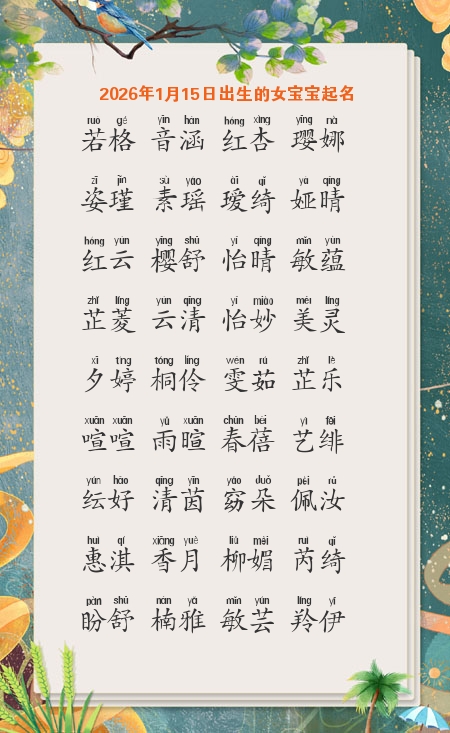 2026年1月15日出生的女宝宝起名
ruò gé yīn hán hóng xìng yīng nà
若格 音涵 红杏 璎娜
zī jǐn sù yáo ài qǐ yà qíng
姿瑾 素瑶 瑷绮 娅晴
hóng yún yīng shū yí qíng mǐn yùn
红云 樱舒 怡晴 敏蕴
zhǐ líng yún qīng yí miào měi líng
芷菱 云清 怡妙 美灵
xī tíng tóng líng wén rú zhǐ lè
夕婷 桐伶 雯茹 芷乐
xuān xuān yǔ xuān chūn bèi yì fēi
喧喧 雨暄 春蓓 艺绯
yún hǎo qīng yīn yǎo duǒ pèi rǔ
纭好 清茵 窈朵 佩汝
huì qí xiāng yuè liǔ mèi ruì qǐ
惠淇 香月 柳媚 芮绮
pàn shū nán yǎ mǐn yún líng yī
盼舒 楠雅 敏芸 羚伊